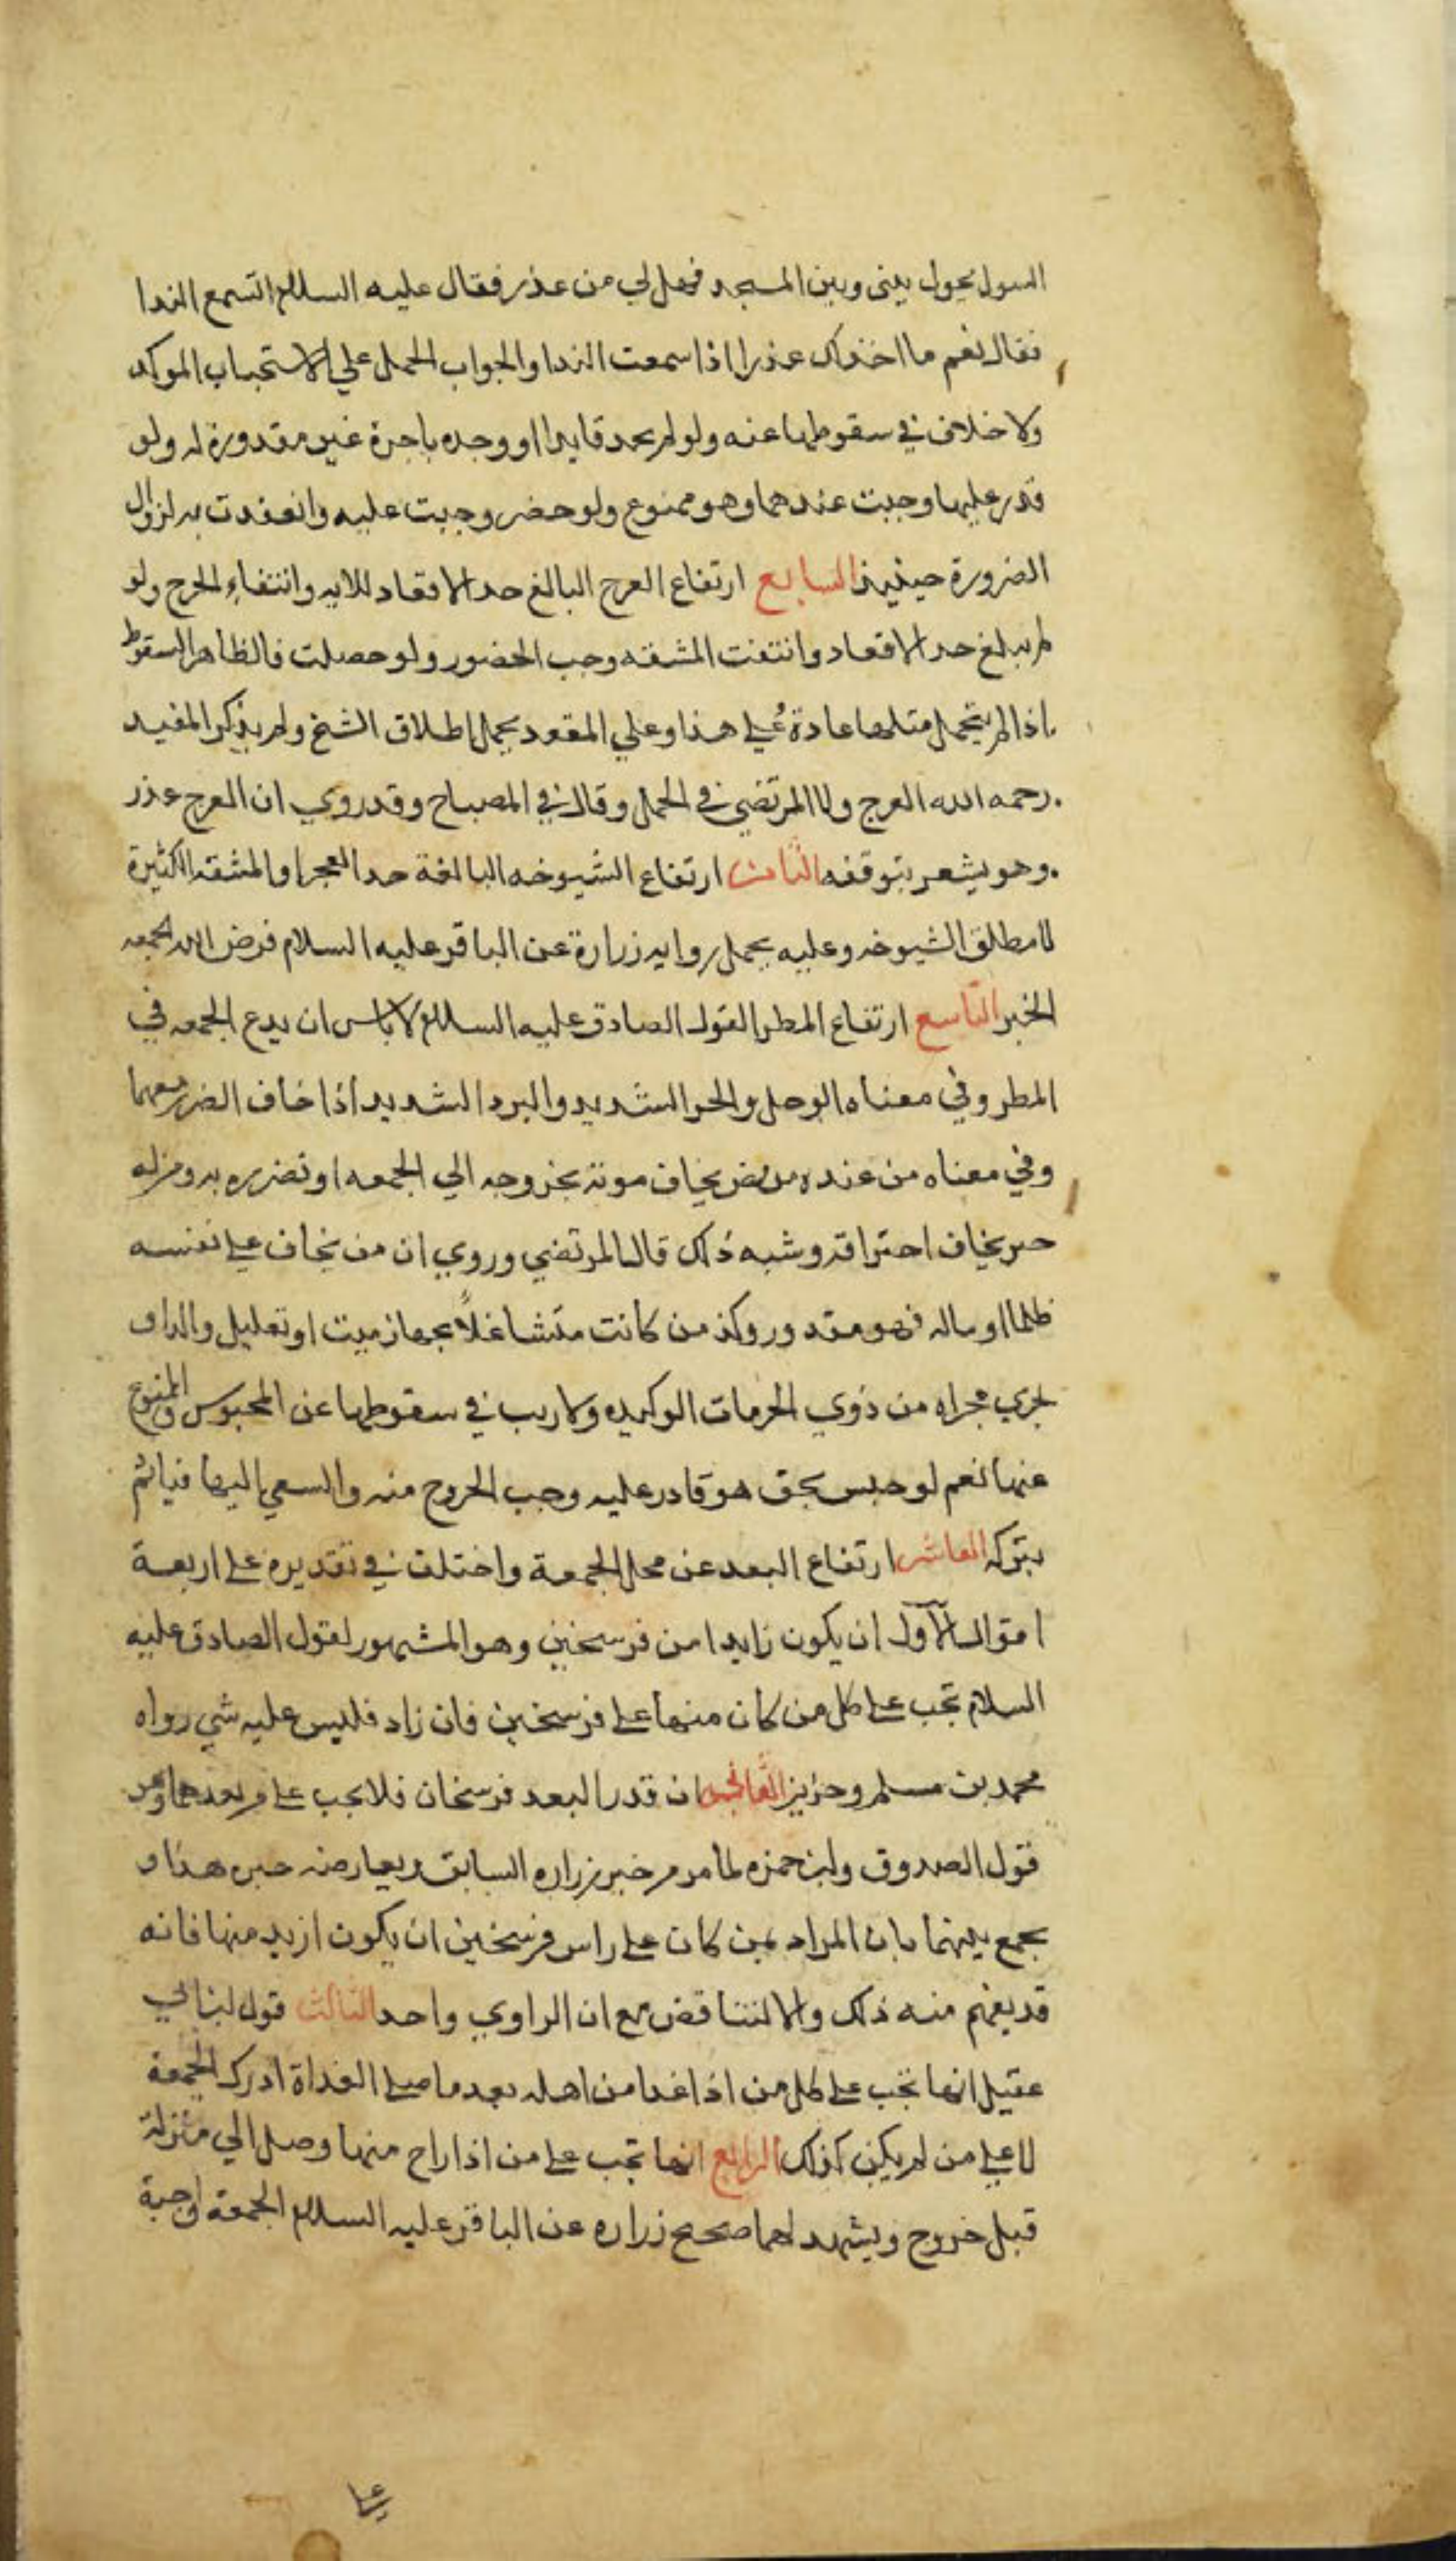 السول تحول بينى وبين المسجد فهل لي من عذر فقال عليه السلام اتسمع الندا
فقال نعم ما اخذلك عذرا اذا سمعت الندا والجواب الحمل علي الاستحباب الموكد
ولا خلاف في سقوطها عنه ولو لم يجد قايدا او وجده باجرة غير مقدورة له ولو
قدر عليها وجبت عندهما وهو ممنوع ولو حضر وجبت عليه وانعقدت به لزوال
الضرورة حينيذ السابع ارتفاع العرج البالغ حد الاقعاد للايه وانتفاء الحرج ولو
لم يبلغ حد الاقعاد وانتفت المشقه وجب الحضور ولو حصلت فالظاهر السقوط
اذا لم يتحمل مثلها عادة علي هذا وعلي المقعود يحمل اطلاق الشيخ ولم يذكر المفيد
رحمه الله العرج ولا المرتضي في الجمل وقال في المصباح وقد روي ان العرج عذر
وهو يشعر بتوقفه الثامن ارتفاع الشيوخه البالغة حد العجز او المشقه الكثيرة
لا مطلق الشيوخه وعليه يحمل روايه زرارة عن الباقر عليه السلام فرض الله الجمعه
الخبر التاسع ارتفاع المطر لقول الصادق عليه السلام لا باس ان يدع الجمعه في
المطر وفي معناه الوحل والحر الشديد والبرد الشديد اذا خاف الضرر معهما
وفي معناه من عنده مريض يخاف موته بخروجه الي الجمعه او تضرره به ومن له
خبز يخاف احتراقه وشبه ذلك قال المرتضي وروي ان من يخاف علي نفسه
ظلما او ماله فهو معذور وكذ من كانت متشاغلاً بجهاز ميت او تعليل والد او
يجري مجراه من ذوي الحرمات الوكيده ولا ريب في سقوطها عن المحبوس والممنوع
عنها نعم لو حبس بحق هو قادر عليه وجب الخروج منه والسعي اليها فياثم
بتركه العاشر ارتفاع البعد عن محل الجمعة واختلف في تقديره علي اربعة
اقوال الاول ان يكون زايدا من فرسخين وهو المشهور لقول الصادق عليه
السلام تجب علي كل من كان منها علي فرسخين فان زاد فليس عليه شي رواه
محمد بن مسلم وحريز الثاني ان قدر البعد فرسخان فلا يجب علي من بعد هما وهو
قول الصدوق وابن حمزه لما مر من خبر زراره السابق ويعارضه خبره هذا و
يجمع بينهما بان المراد بمن كان علي راس فرسخين ان يكون ازيد منها فانه
قد يفهم منه ذلك والا لتناقض مع ان الراوي واحد الثالث قول ابن ابي
عقيل انها تجب علي كل من اذا غدا من اهله بعد ما صلي الغداة ادرك الجمعة
لا علي من لم يكن كذلك الرابع انها تجب علي من اذا راح منها وصل الي منزلة
قبل خروج ويشهد لهما صحيح زراره عن الباقر عليه السلام الجمعة واجبة
علي